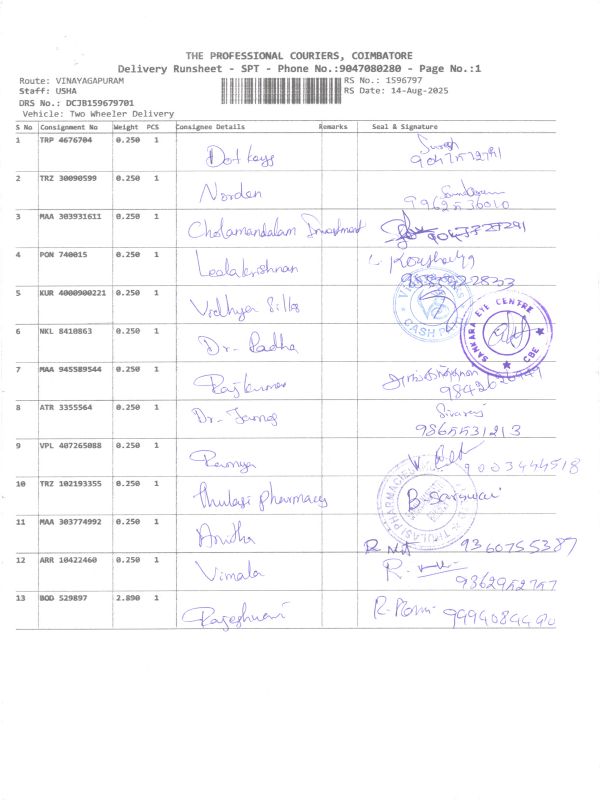 THE PROFESSIONAL COURIERS, COIMBATORE
Delivery Runsheet - SPT - Phone No.:9047080280 - Page No.:1
Route: VINAYAGAPURAM RS No.: 1596797
Staff: USHA RS Date: 14-Aug-2025
DRS No.: DCJB159679701
Vehicle: Two Wheeler Delivery
S No Consignment No Weight PCS Consignee Details Remarks Seal & Signature
1 TRP 4676704 0.250 1 Dot Keys Suresh
2 TRZ 30090599 0.250 1 Norden 9962536010
3 MAA 303931611 0.250 1 Cholamandalam Investment
4 PON 740015 0.250 1 Leelakrishnan
5 KUR 4000900221 0.250 1 Vidhya Silks CASH
6 NKL 8410863 0.250 1 Dr. Radha SANKARA EYE CENTRE CBE
7 MAA 945589544 0.250 1 Rajkumar
8 ATR 3355564 0.250 1 Dr. James Sivaraj
9865531213
9 VPL 407265088 0.250 1 Ramya 9003444518
10 TRZ 102193355 0.250 1 Thulasi pharmacy B. Saraswari
11 MAA 303774992 0.250 1 Anitha 9360755387
12 ARR 10422460 0.250 1 Vimala 9362952757
13 BOD 529897 2.890 1 Rajeshwari 9994084490